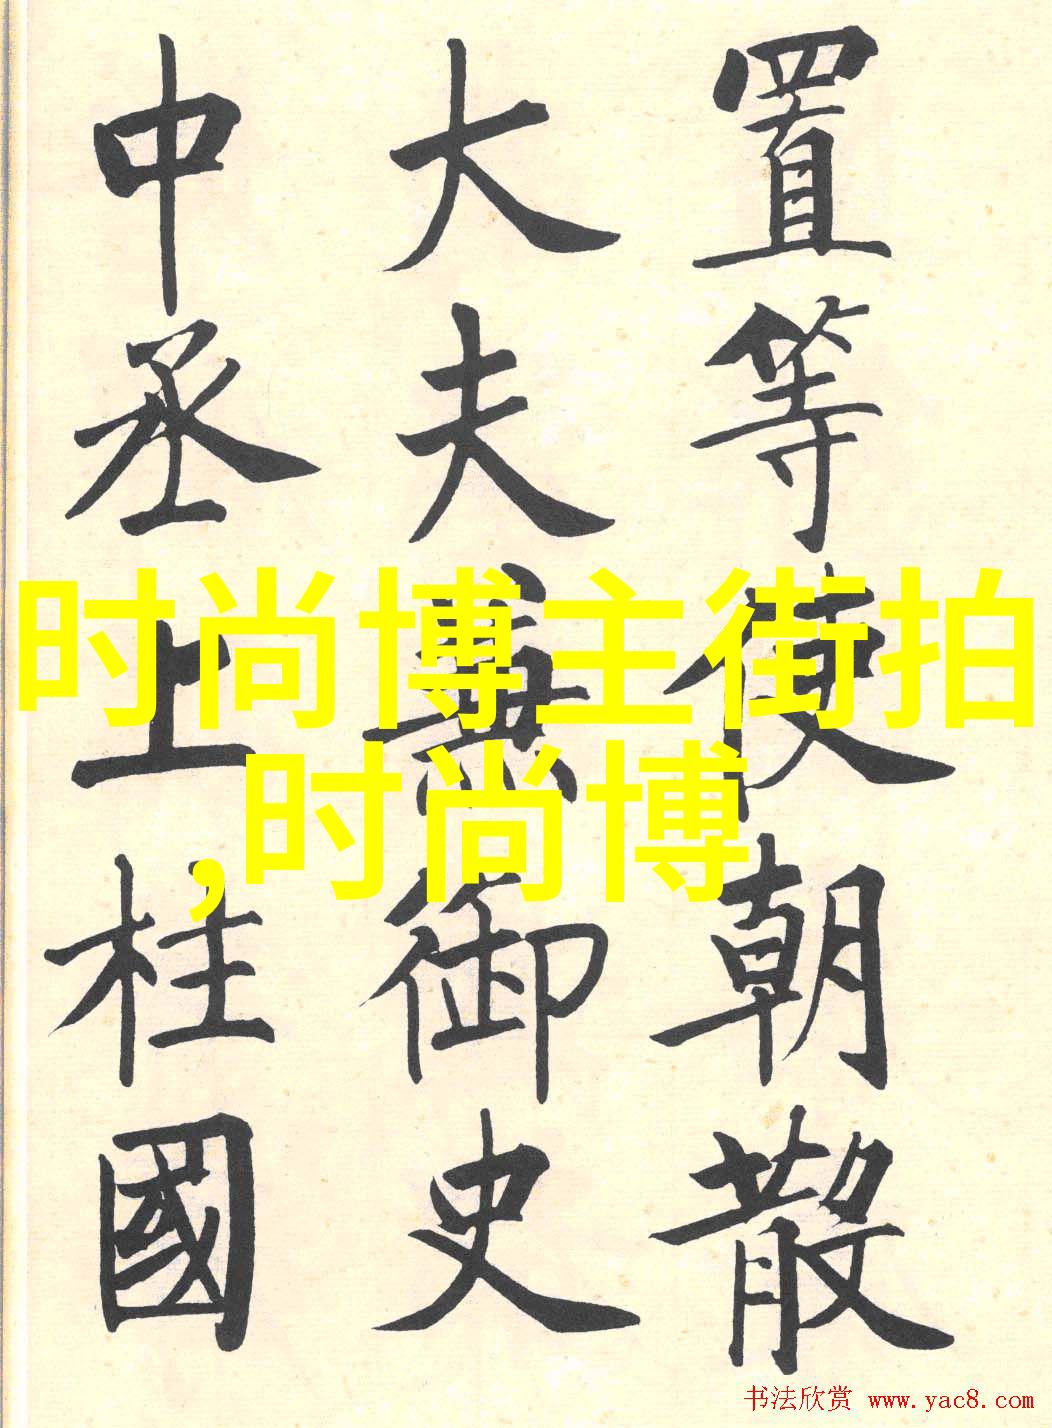 置等使朝散
大夫兼御史
中丞上柱國
时尚博主街拍
,时尚博
书法欣赏 www.yac8.com